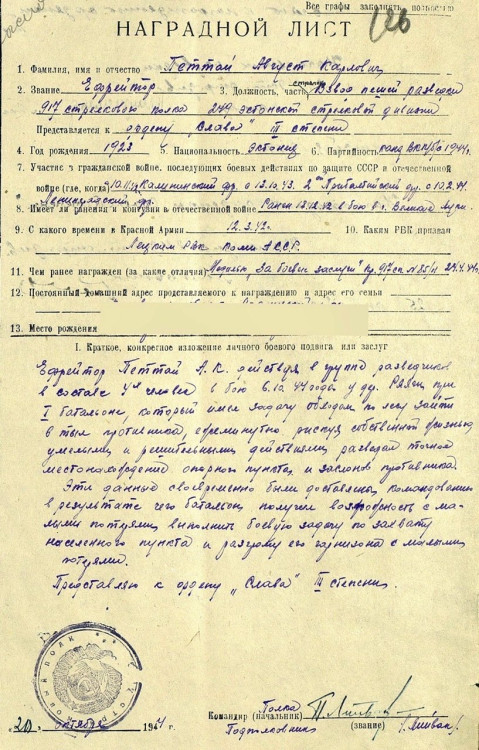 Все графы заполнять полностью
126
НАГРАДНОЙ ЛИСТ
1. Фамилия, имя и отчество Петтай Август Карлович
2. Звание Ефрейтор 3. Должность, часть стрелок Взвод пешей разведки
917 стрелкового полка 249 эстонской стрелковой дивизии
Представляется к ордену „Слава" III степени
4. Год рождения 1923 5. Национальность эстонец 6. Партийность канд ВКП(б) 1944г.
7. Участие в гражданской войне, последующих боевых действиях по защите СССР и отечественной
войне (где, когда) Калининский фр. с 13.10.43. 2й Прибалтийский фр. с 10.2.44.
Ленинградский фр.
8. Имеет ли ранения и контузии в отечественной войне Ранен 13.12.42 в бою в г. Великие Луки.
9. С какого времени в Красной Армии 12.3.42г. 10. Каким РВК призван
РВК Коми АССР.
11. Чем ранее награжден (за какие отличия) Медаль „За боевые заслуги" пр. 917 сп №85/н 24.4.44г.
12. Постоянный домашний адрес представляемого к награждению и адрес его семьи
13. Место рождения
I. Краткое, конкретное изложение личного боевого подвига или заслуг
Ефрейтор Петтай А.К. действуя в группе разведчиков
в составе 4х человек в бою 6.10.44 года у дер. при
I батальоне, который имел задачу обходом по лесу зайти
в тыл противника, ежеминутно рискуя собственной жизнью
умелыми и решительными действиями разведал точное
местонахождение опорного пункта и заслонов противника.
Эти данные своевременно были доставлены командованию
в результате чего батальон получил возможность с ма-
лыми потерями выполнить боевую задачу по захвату
населенного пункта и разгрому его гарнизона с малыми
потерями.
Представляю к ордену „Слава" III степени.
Командир (начальник) Полка
Подполковник (звание)
„20" октября 1944 г.